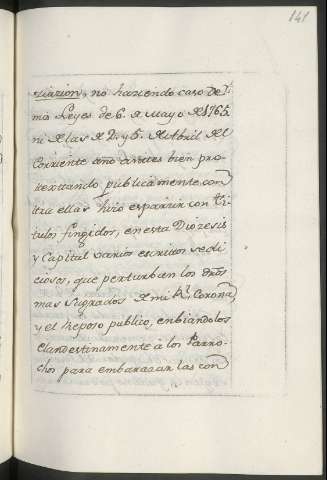 141
ziazion, no haziendo caso de l.
mis Leyes de 6. de Mayo de 1765
ni de las de 2. y 5. de Abril del
Corriente año antes bien pro-
textando publicamente con
tra ellas hizo esparzir con ti
tulos fingidos, en esta Diozesis
y Capital varios escritos sedi
ciosos, que perturban los dros
mas Sagrados de mi Rl. Corona
y el Reposo publico, enbiandolos
clandestinamente à los Parro-
chos para embarazar las con